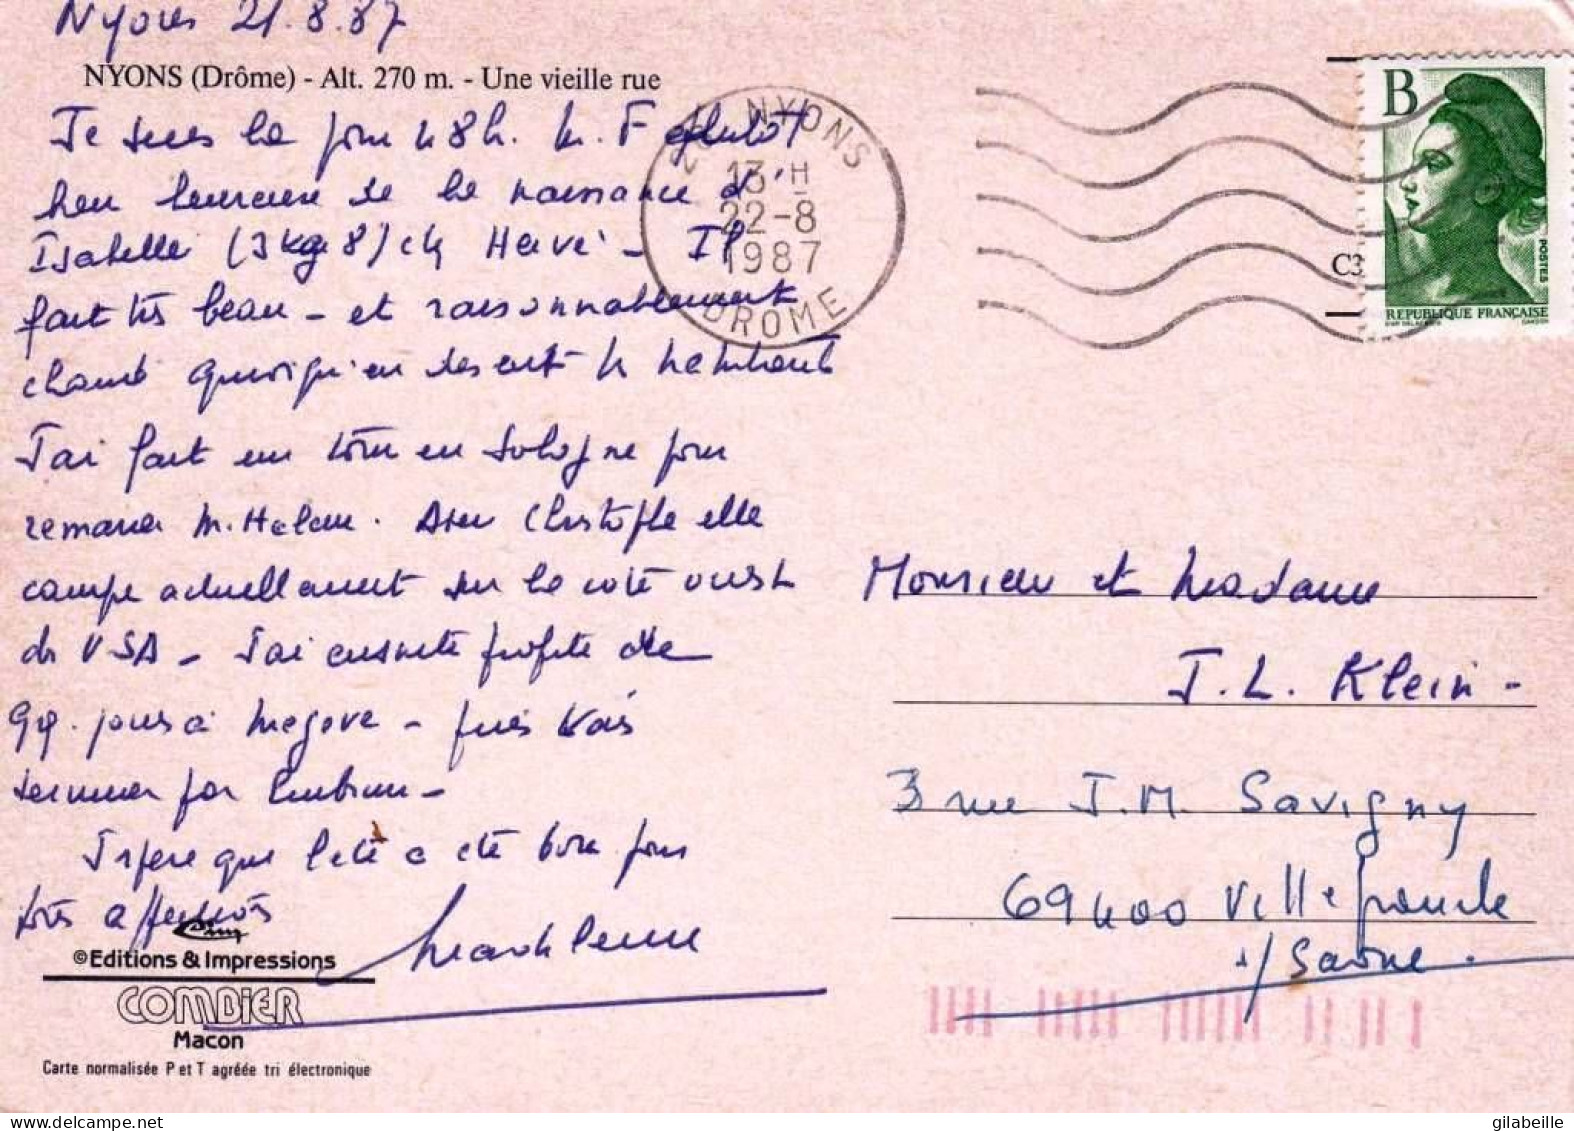 Nyons 21.8.87
NYONS (Drôme) - Alt. 270 m. - Une vieille rue
Je suis là pour 48h. M. F
heureuse de la naissance d'
Isabelle (3kg 8) ch Hervé - Il
fait très beau - et raisonnablement
chaud quoiqu'en disent les
J'ai fait un tour en Sologne pour
remarier M. Hélène. Avec Christophe elle
campe actuellement sur la côte ouest
des USA - J'ai ensuite profité de
qq. jours à Megève - puis vais
terminer par Embrun -
J'espère que l'été a été bon pour
vous affectueux
Madeleine
©Editions & Impressions
COMBIER
Macon
Carte normalisée P et T agréée tri électronique
26 NYONS
13 H
22-8
1987
DROME
B
POSTES
REPUBLIQUE FRANÇAISE
C3
Monsieur et Madame
J.L. Klein -
3 rue J.M. Savigny
69400 Villefranche
s/ Saône.
gilabeille